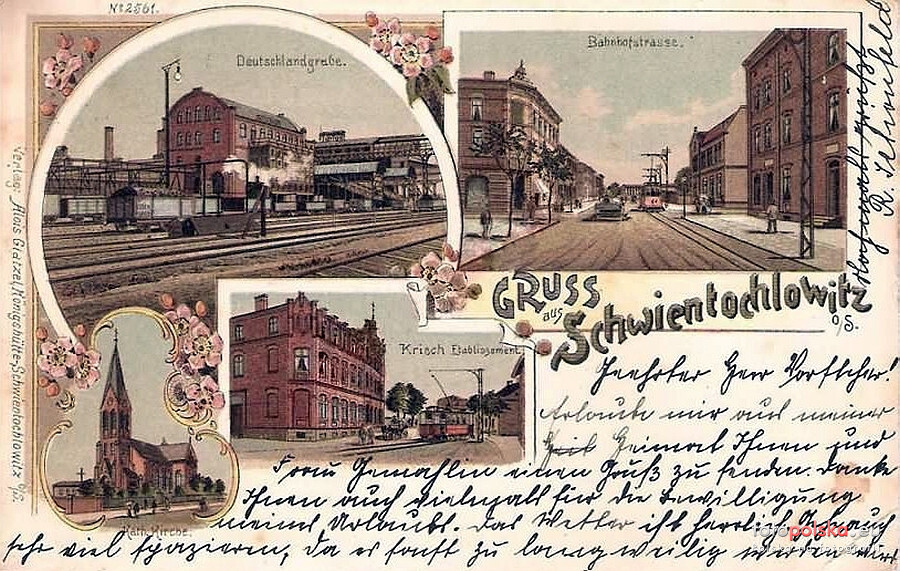 No 2561.
Deutschlandgrube.
Bahnhofstrasse.
Verlag: Alois Glatzel, Königshütte-Schwientochlowitz O/S.
GRUSS
aus
Schwientochlowitz
O/S.
Krisch Etablissement.
Kath. Kirche.
Geehrter Herr Vorsteher!
Erlaube mir aus meiner
Heimat Ihnen und
Frau Gemahlin einen Gruß zu senden. Danke
Ihnen auch vielmals für die Bewilligung
meines Urlaubs. Das Wetter ist herrlich. Gehe auch
sehr viel spazieren, da es sonst zu langweilig
Hochachtungsvoll grüßt
R.
fotopolska.eu